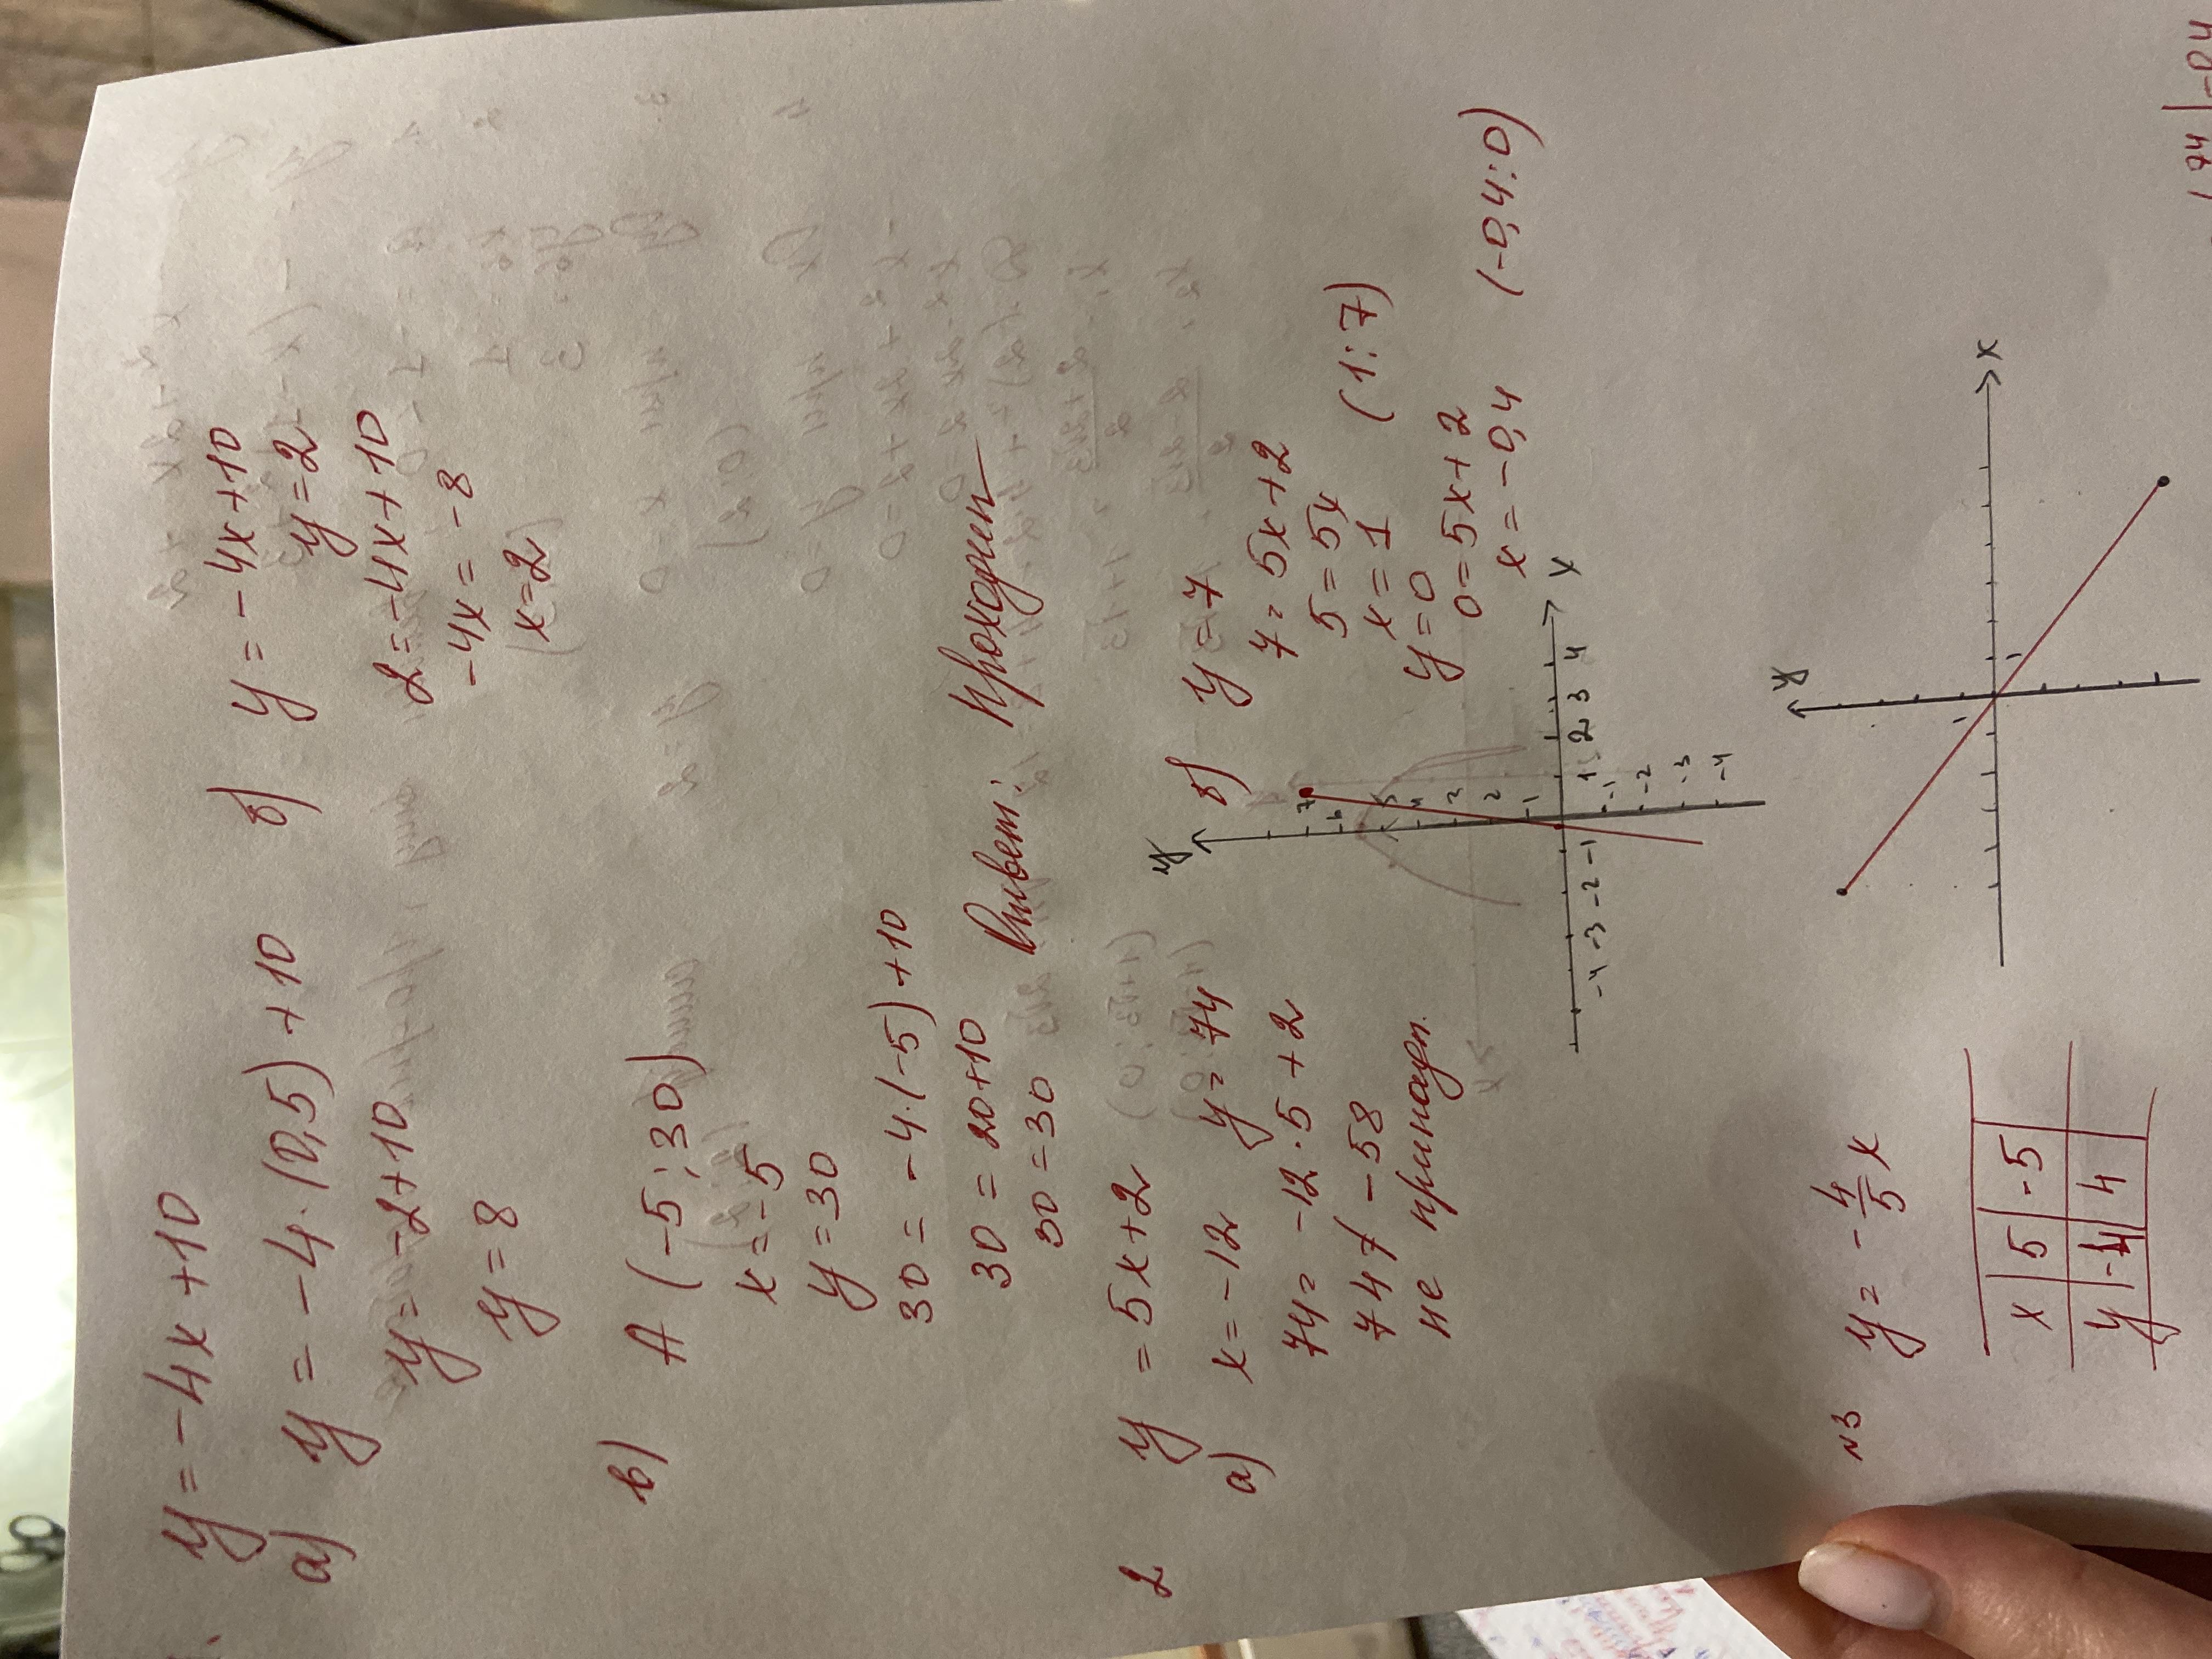 y = -4x+10
а) y = -4·(0,5)+10
y = -2+10
y = 8
б) y = -4x+10
y=2
2=-4x+10
-4x = -8
x=2
в) A (-5;30)
x=-5
y=30
30 = -4·(-5)+10
30 = 20+10
30=30
Ответ: проходит
2 y = 5x+2
а) x=-12 y=74
74= -12·5+2
74≠-58
не принадл.
б) y=7
7=5x+2
5=5x
x=1 (1:7)
y=0
0=5x+2
x=-0,4 (-0,4:0)
y
7
6
5
4
3
2
1
-4 -3 -2 -1 1 2 3 4 x
-1
-2
-3
-4
N3 y = -4/5 x
x 5 -5
y -4 4
y
1
1
x